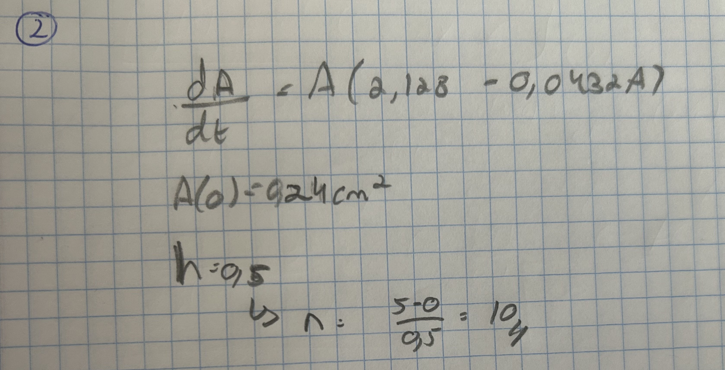 2
dA/dt = A(2,128 - 0,0432A)
A(0) = 0,24 cm²
h = 0,5
↳ n = (5-0)/0,5 = 10//